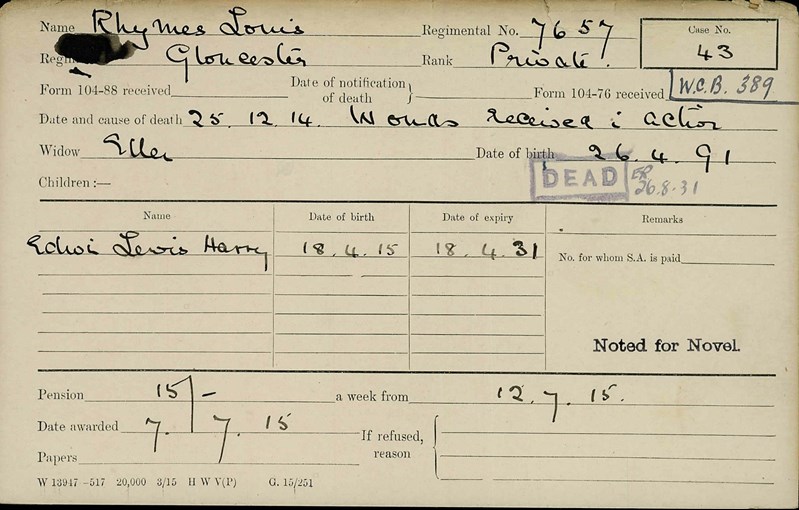 Name Rhymes Louis Regimental No. 7657 Case No. 43
Regi Gloucester Rank Private.
W.C.B. 389
Form 104-88 received Date of notification of death } Form 104-76 received
Date and cause of death 25. 12. 14. Wonds received i action
Widow Ellen Date of birth 26. 4. 91
Children :— DEAD 26.8.31
Name Date of birth Date of expiry Remarks
Edwin Lewis Harry 18. 4. 15 18. 4. 31
No. for whom S.A. is paid
Noted for Novel.
Pension 15/- a week from 12. 7. 15.
Date awarded 7. 7. 15
If refused, reason
Papers
W 13947—517 20,000 3/15 H W V(P) G. 15/251